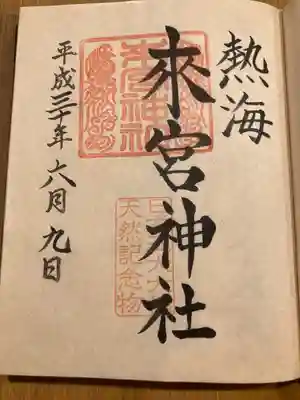 熱海
來宮神社
天然記念物
平成三十年六月九日